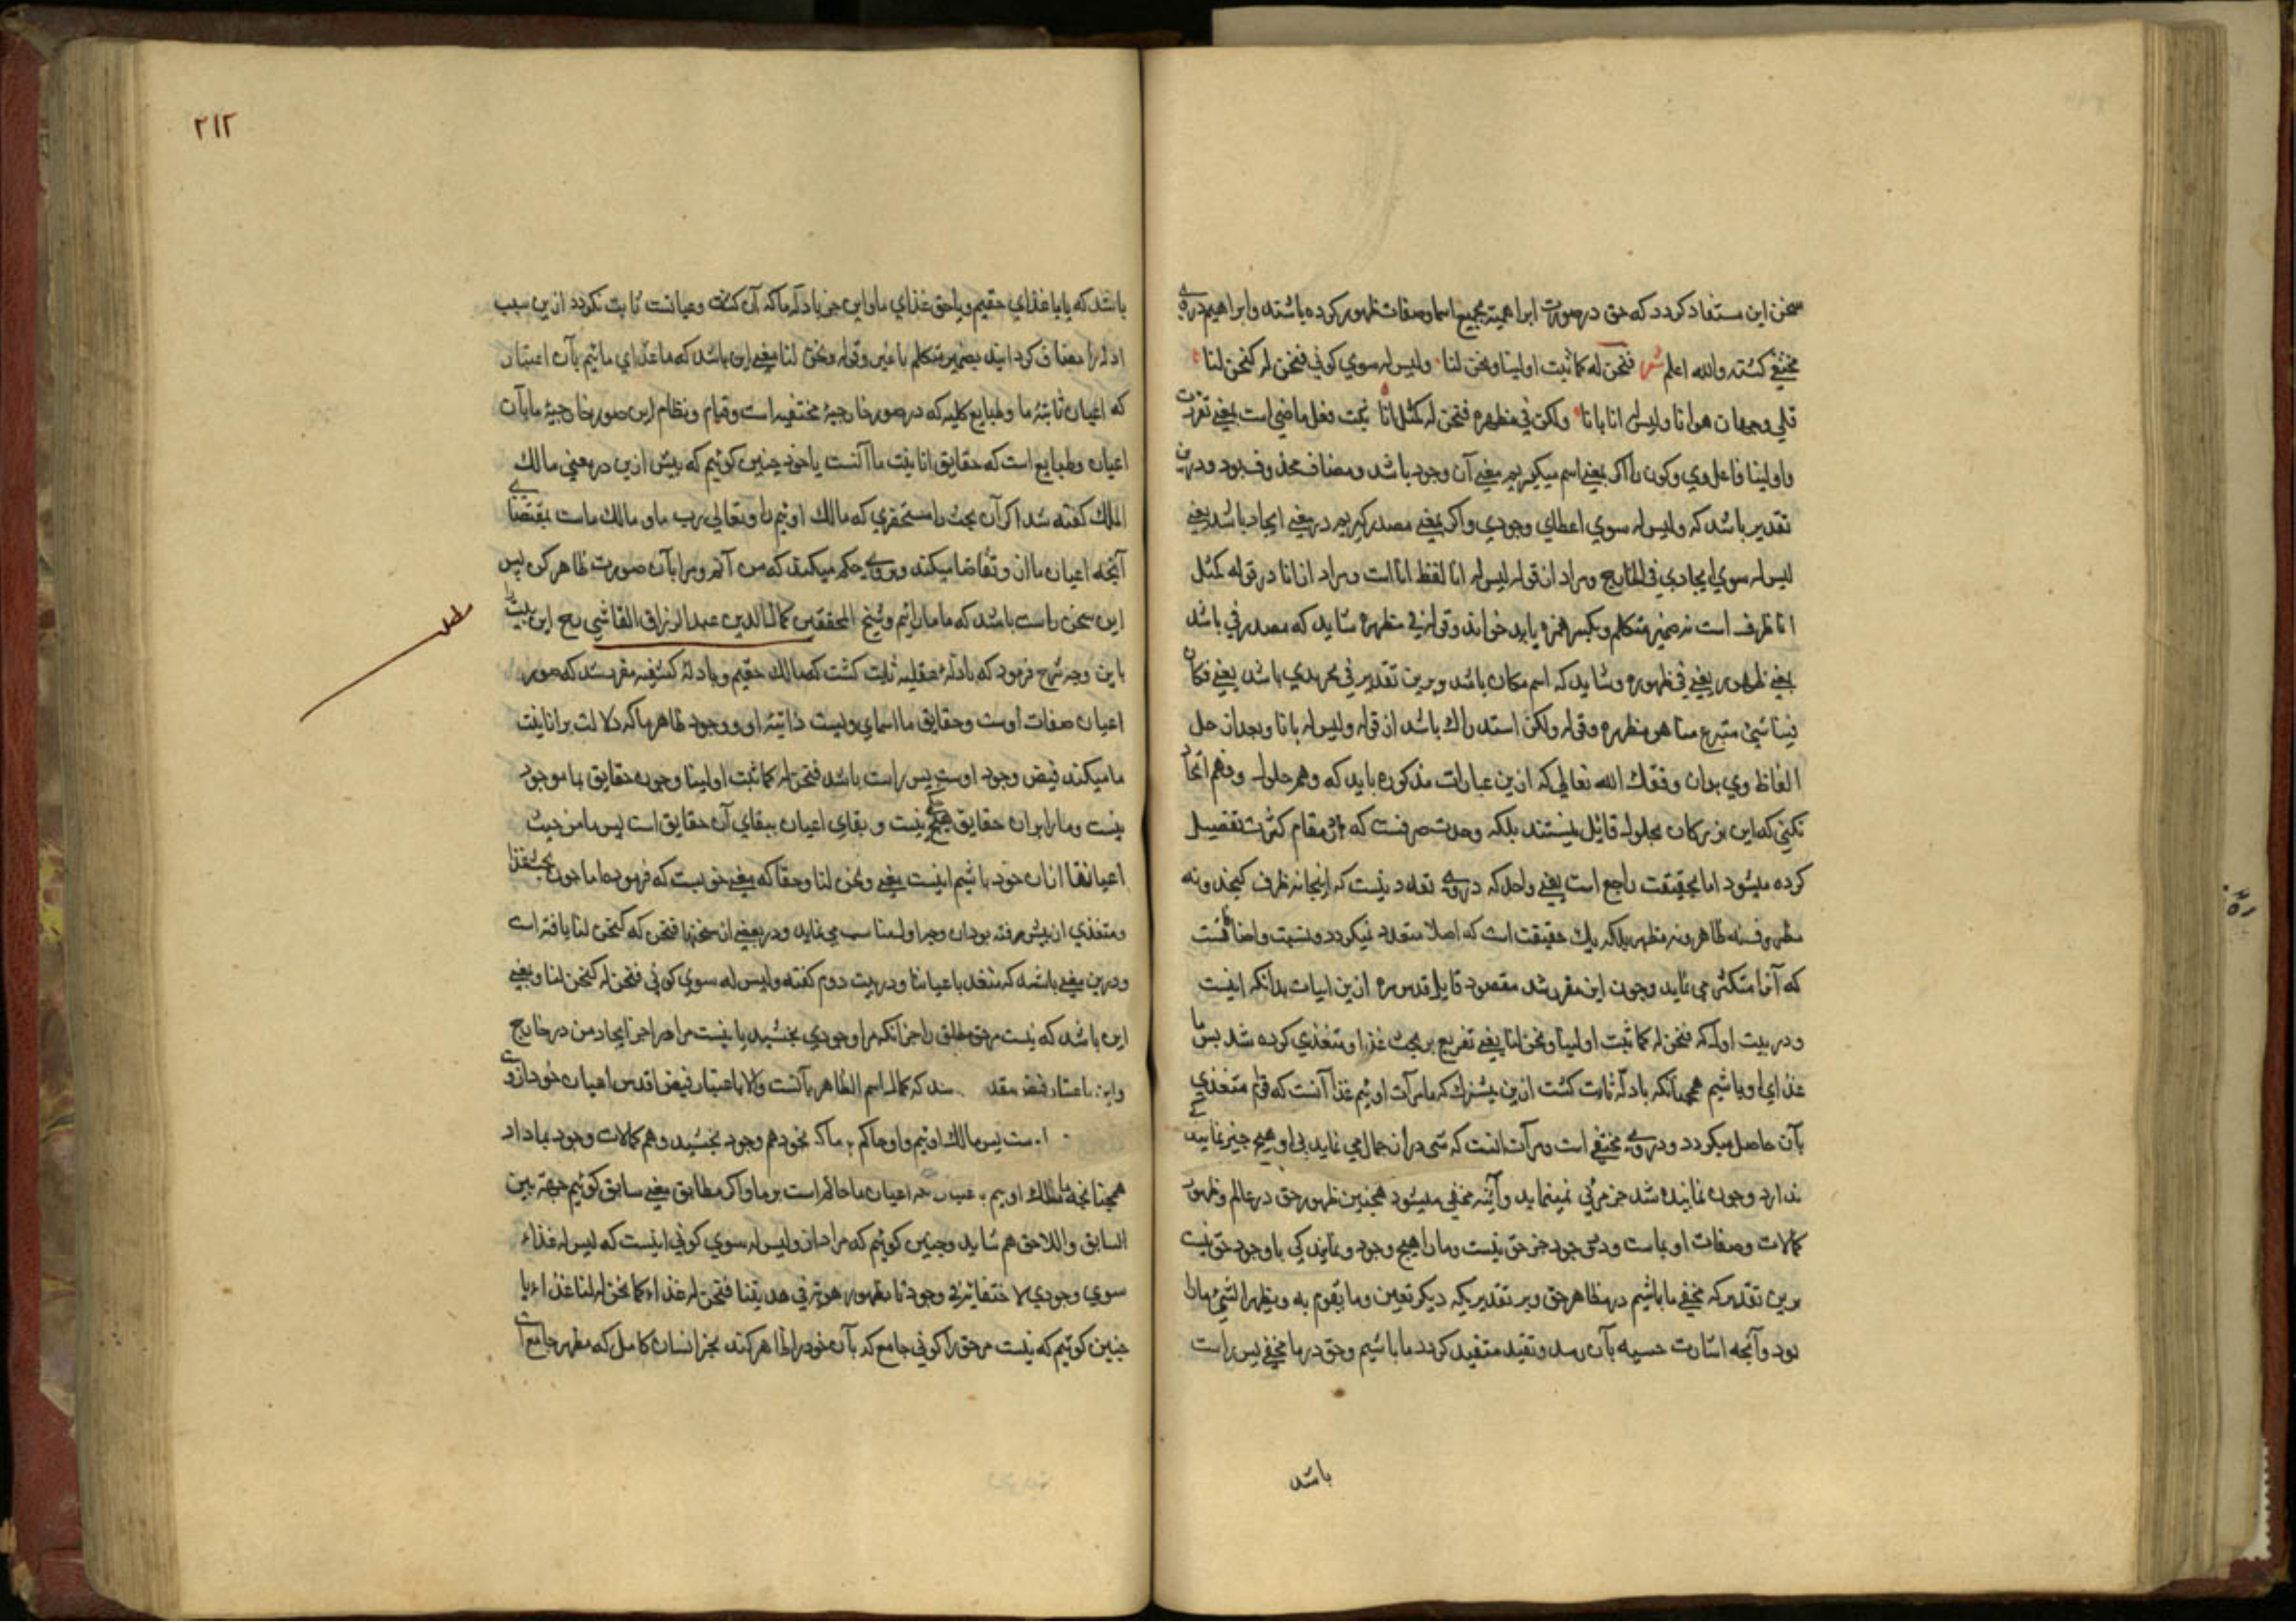 سخن این مستفاد کردد که حق در صورت ابراهمیته بجمیع اسما وصفات ظهور کرده باشد وابراهیم در وی
مختفی کشته والله اعلم شعر فنحن له کما ثبت ادلتنا ونحن لنا ولیس له سوی کونی فنحن له کنحن لنا
فلی وجهان هو وانا ولیس له انا بانا ولکن فی مظهره فنحن له کمثل انا ثبت فعل ماضی است بمعنی تقررت
وادلتنا فاعل وی وکون را اکر بمعنی اسم میکیریم معنی آن وجود باشد ومضاف محذوف بود ودرین
تقدیر باشد که ولیس له سوی اعطای وجودی واکر بمعنی مصدر کیریم در معنی ایجاد باشد یعنی
لیس له سوی ایجادی فی الخارج ومراد از قوله لیس له انا لفظ انا است ومراد از انا در قوله کمثل
انا ظرف است نه ضمیر متکلم وبکسر همزه باید خواند وقوله فی مظهره شاید که مصدر می باشد
بمعنی ظهور یعنی فی ظهوره وشاید که اسم مکان باشد وبرین تقدیر فی تجریدی باشد یعنی فکان
فینا شیئ متبرع منا هو مظهره وقوله ولکن استدراک باشد از قوله ولیس له بانا وبعد از حل
الفاظ وی بدان وفقک الله تعالی که ازین عبارات مذکوره باید که وهم حلول وفهم اتحاد
نکنی که این بزرکان بحلول قایل نیستند بلکه وحدت صرفست که در مقام کثرت تفصیل
کرده میشود اما بحقیقت راجع است یعنی واحد که در وی تعدد نیست که اینجا نه ظرف کنجد ونه
مظروف نه ظاهر ونه مظهر بلکه یک حقیقت است که اصلا متعدد نیکردد ونسبت واضافتست
که آنرا متکثر می نماید وچون این مقرر شد مقصود قایل قدس سره ازین ابیات بدانکه اینست
ودر بیت اول که فنحن له کما ثبت ادلتنا ونحن لنا یعنی تفریع بر بحث غذا ومتغذی کرده شد پس ما
غذای او باشیم همچنانکه بادله ثابت کشت ازین پیشترک که ما مرآت اوئیم غذا آنست که قوام متغذی
بآن حاصل میکردد ودر وی مختفی است ومرآت آنست که شی در آن جمال می نماید بی او هیچ چیز نمایندکی
ندارد وچون نماینده شد جز مرئی نمینماید وآینه مخفی میشود همچنین ظهور حق در عالم وظهور
کمالات وصفات او بماست ودر وجود جز حق نیست وما را هیچ وجود ونمایندکی با وجود حق نیست
برین تقدیر که مخفی ما باشیم در مظاهر حق وبر تقدیر یکه دیکر تعین وما یقوم به ویظهر الشئ ما را
بود وآنچه اشارت حسیه بآن رسد وتقید متقید کردد ما باشیم وحق در ما مخفی پس راست
باشد
۲۱۲
باشد که یا ما غذای حقیم ویا حق غذای ما واین جز بادله ما که آن کشف وعیانست ثابت نکردد ازین سبب
ادله را مضاف کردانید بضمیر متکلم با غیر وقوله ونحن لنا معنی این باشد که ما غذای مائیم بآن اعتبار
که اعیان ثابتهٔ ما وطبایع کلیه که در صور خارجیهٔ مختفیه است وقیام ونظام این صور خارجیهٔ ما بآن
اعیان وطبایع است که حقایق انانیت ما آنست یا خود چنین کوئیم که پیش ازین در معنی مالک
الملک کفته شد اکر آن بحث را مستحضری که مالک اوئیم واو تعالی رب ما ومالک ماست بمقتضای
آنچه اعیان ما از وتقاضا میکند وبر وی حکم میکند که من آنم ومرا بآن صورت ظاهر کن پس
این سخن راست باشد که ما مارائیم وشیخ المحققین کمال الدین عبد الرزاق القاشی رح این بیت را
اصل
باین وجه شرح فرمود که بادلهٔ عقلیه ثابت کشت که ما ملک حقیم وبادلهٔ کشفیه مقرر شد که صور
اعیان صفات اوست وحقایق ما اسمای ویست ذاتیهٔ او ووجود ظاهر ما که دلالت بر انانیت
ما میکند فیض وجود اوست پس راست باشد فنحن له کما ثبت ادلتنا وچون حقایق بما موجود
نیست وما را بر آن حقایق حکمی نیست وبقای اعیان ببقای آن حقایق است پس ما من حیث
اعیاننا از آن خود باشیم اینست معنی ونحن لنا وحقا که معنی خوبست که فرموده اما چون بحث غذا
ومتغذی از پیش رفته بود آن وجه اول مناسب می نماید ودر بعضی از نسخها فنحن که کنحن لنا یافته است
ودرین معنی باشد که متحد با عیاننا ودر بیت دوم کفته ولیس له سوی کونی فنحن له کنحن لنا ومعنی
این باشد که نیست مر حق مطلق را جز آنکه مرا وجودی بخشید یا نیست مر او را جز ایجاد من در خارج
واین باعتبار فیض مقدس که کمال اسم الظاهر بآنست والا باعتبار فیض اقدس اعیان خود از وی
است پس ما ملک اوئیم واو حاکم بر ما که بخود هم وجود بخشید وهم کمالات وجود بما داد
همچنانچه ما ملک اوییم اعیان ما حاکم است بر ما واکر مطابق معنی سابق کوئیم جهة بین
السابق واللاحق هم شاید وچنین کوئیم که مراد از ولیس له سوی کونی اینست که لیس له غذاء
سوی وجودی لاختفائه فی وجودنا بظهور هویته فی هذیتنا فنحن له غذاء کما نحن له لنا غذاء یا
چنین کوئیم که نیست مر حق را کونی جامع که بآن خود را ظاهر کند بجز انسان کامل که مظهر جامع